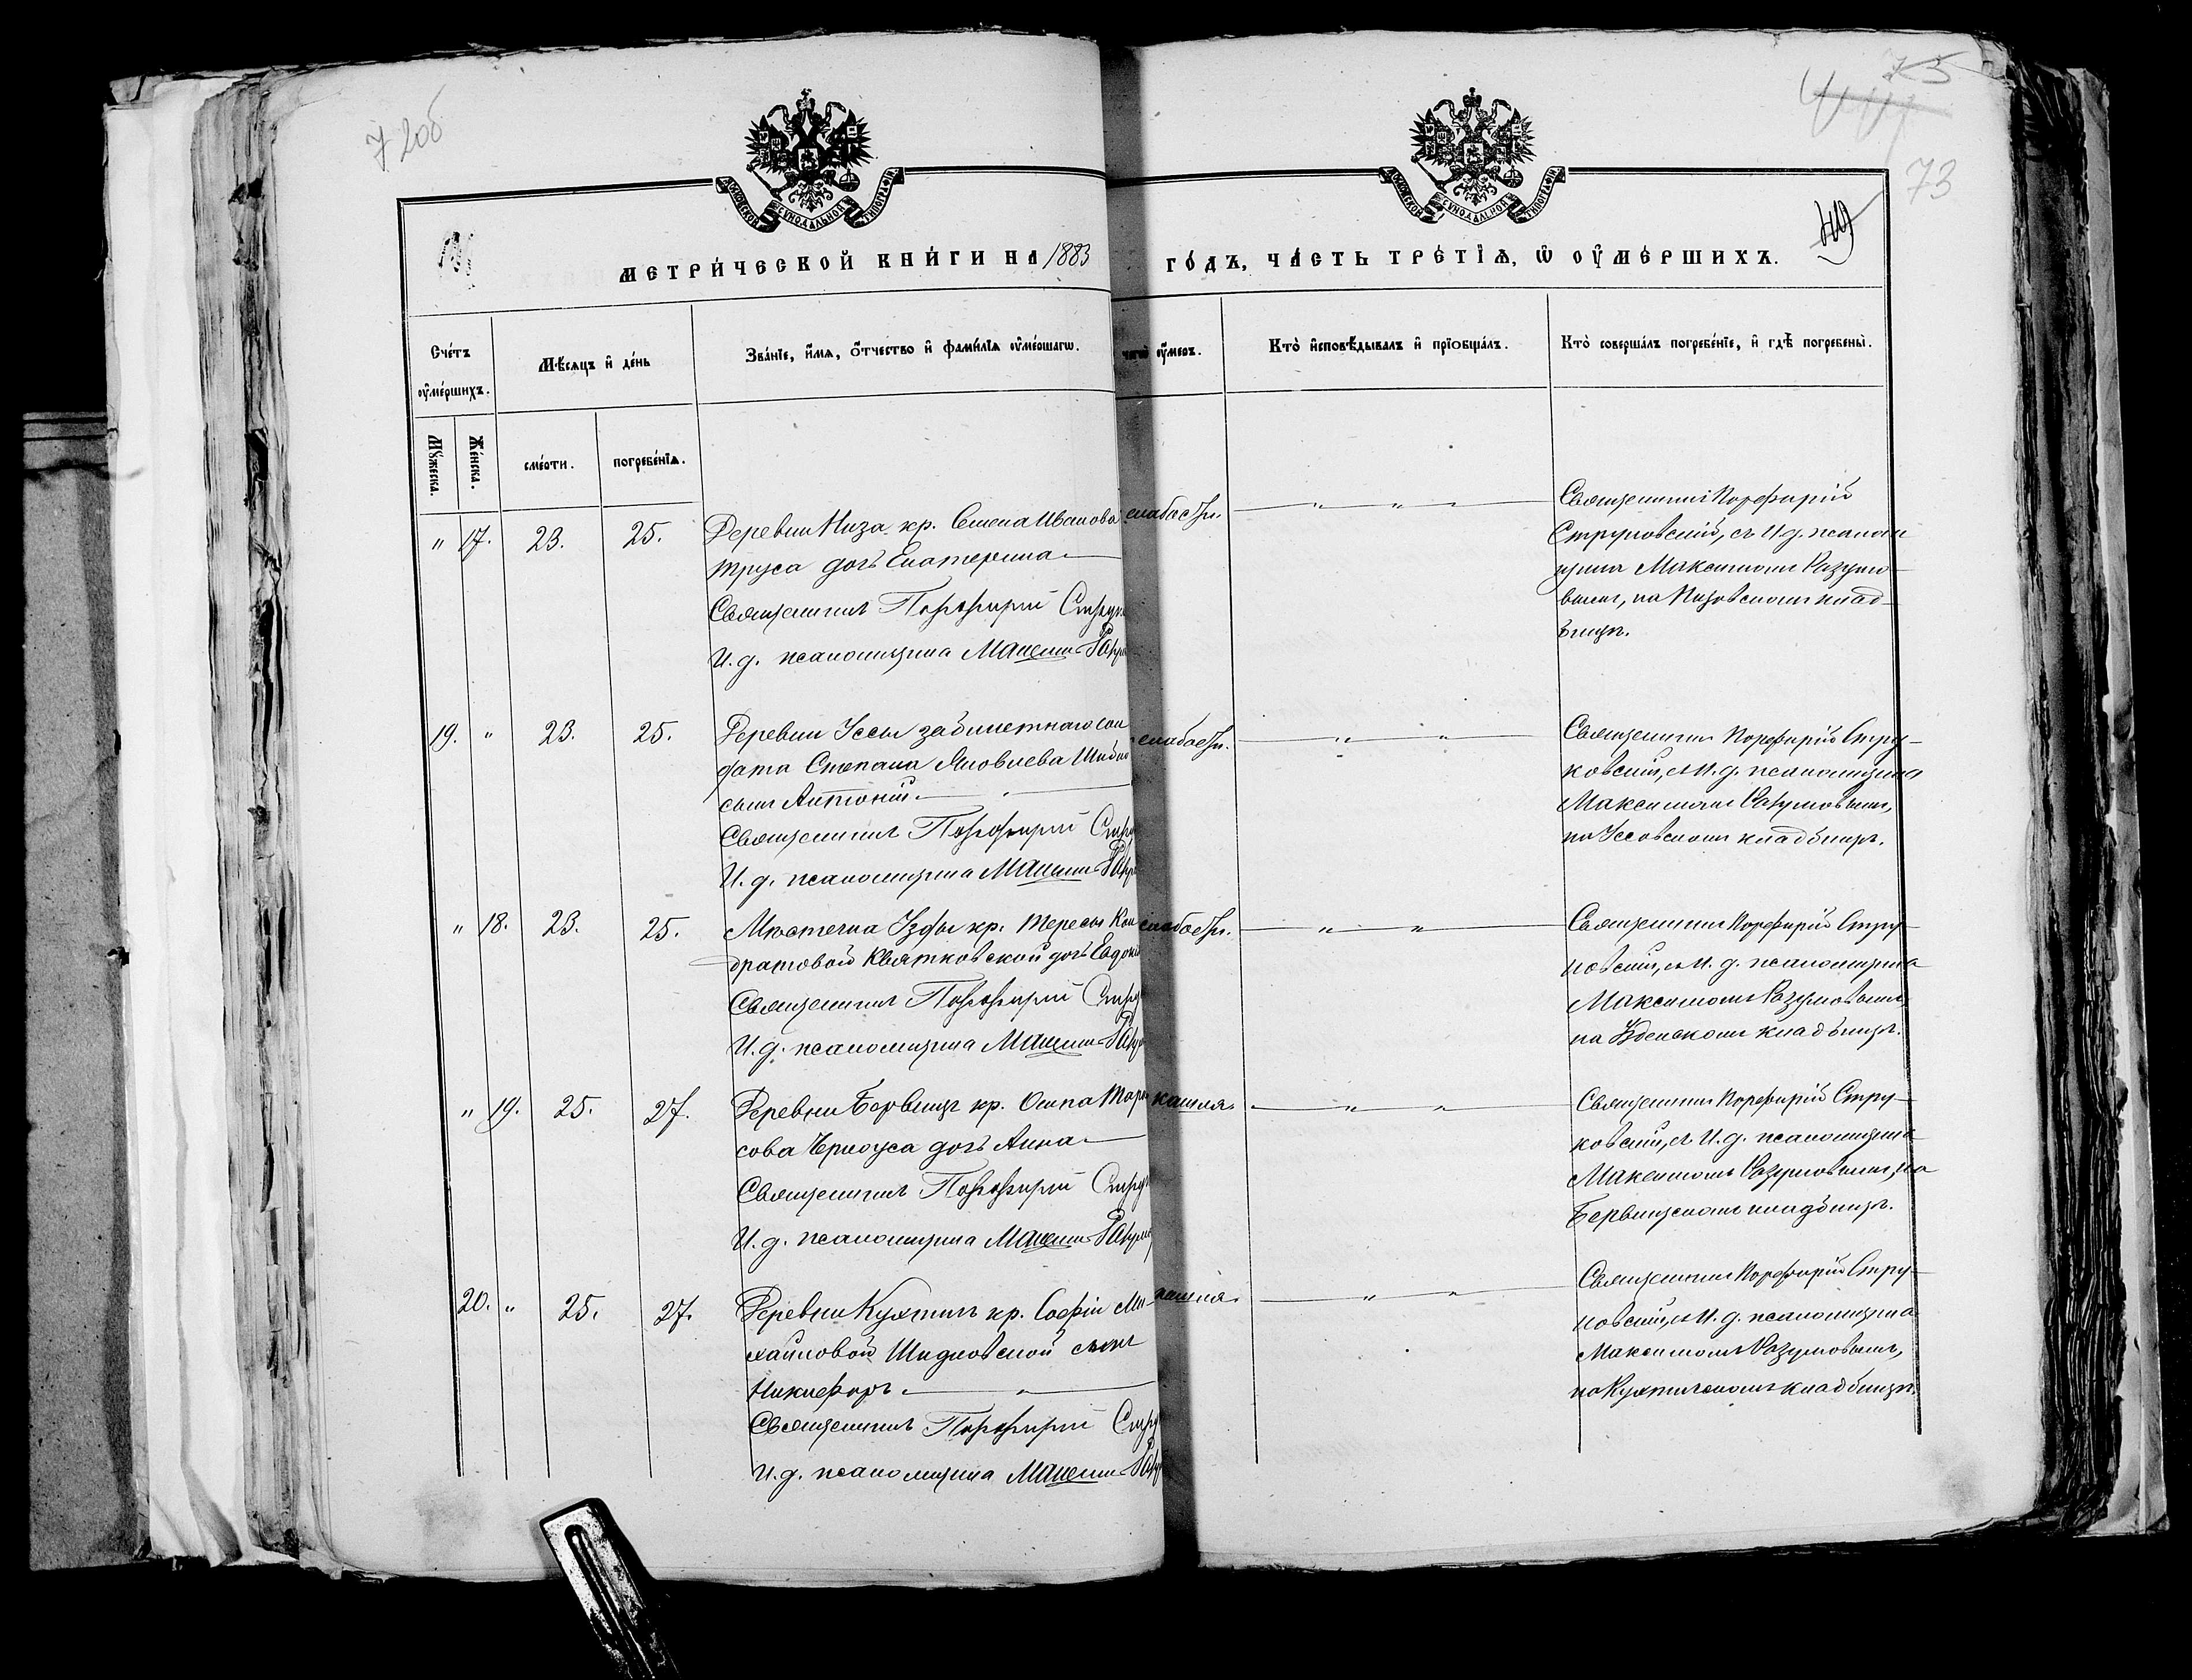 72об
75
73
МОСКОВСКОЙ СѴНОДАЛЬНОЙ ТИПОГРАФІИ
МОСКОВСКОЙ СѴНОДАЛЬНОЙ ТИПОГРАФІИ
МЕТРИ́ЧЕСКОЙ КНИ́ГИ НА 1883
ГО́ДЪ, ЧА́СТЬ ТРЕ́ТІѦ, Ѡ ОУ҆МЕ́РШИХЪ.
Сче́тъ оу҆ме́ршихъ.
Мѣ́сяцъ и҆ де́нь
Зва́нїе, и҆́мѧ, ѻ҆́тчество и҆ фамѝлїѧ оу҆ме́ршагѡ.
чегѡ̀ оу҆́меръ.
Кто̀ и҆сповѣ́дывалъ и҆ прїѻбща́лъ.
Кто̀ соверша́лъ погребе́нїе, и҆ гдѣ̀ погребены̀.
Мꙋ́жеска.
Же́нска.
сме́рти.
погребе́нїѧ.
" 17. 23. 25.
Деревни Низа кр. Семена Иванова
труса дочь Екатерина
Священникъ Порфирій Струк
И. д. псаломщика Максимъ Разум
слабости.
Священникъ Порфирій
Струковскій, съ И. д. псалом
щика Максимомъ Разумо-
вымъ, на Низовскомъ клад-
бищѣ.
19. " 23. 25.
Деревни Уссы забилетнаго сол
дата Степана Яковлева Шиба
сынъ Антоній
Священникъ Порфирій Стру
И. д. псаломщика Максимъ Разу
слабости.
Священникъ Порфирій Стру-
ковскій, съ И. д. псаломщика
Максимомъ Разумовымъ,
на Уссовскомъ кладбищѣ.
" 18. 23. 25.
Мѣстечка Узды кр. Тересы Кон
дратовой Квятковской дочь Евдокі
Священникъ Порфирій Стру
И. д. псаломщика Максимъ Разу
слабости.
Священникъ Порфирій Стру-
ковскій, съ И. д. псаломщика
Максимомъ Разумовымъ
на Узденскомъ кладбищѣ.
" 19. 25. 27.
Деревни Бервищъ кр. Осипа Тара
сова Черноуса дочь Анна
Священникъ Порфирій Стру
И. д. псаломщика Максимъ Разум
кашля.
Священникъ Порфирій Стру-
ковскій, съ И. д. псаломщика
Максимомъ Разумовымъ, на
Бервищскомъ кладбищѣ.
20. " 25. 27.
Деревни Кухтичъ кр. Софіи Ми-
хайловой Шидловской сынъ
Никифоръ
Священникъ Порфирій Стру
И. д. псаломщика Максимъ Разу
кашля.
Священникъ Порфирій Стру-
ковскій, съ И. д. псаломщика
Максимомъ Разумовымъ,
на Кухтичскомъ кладбищѣ.